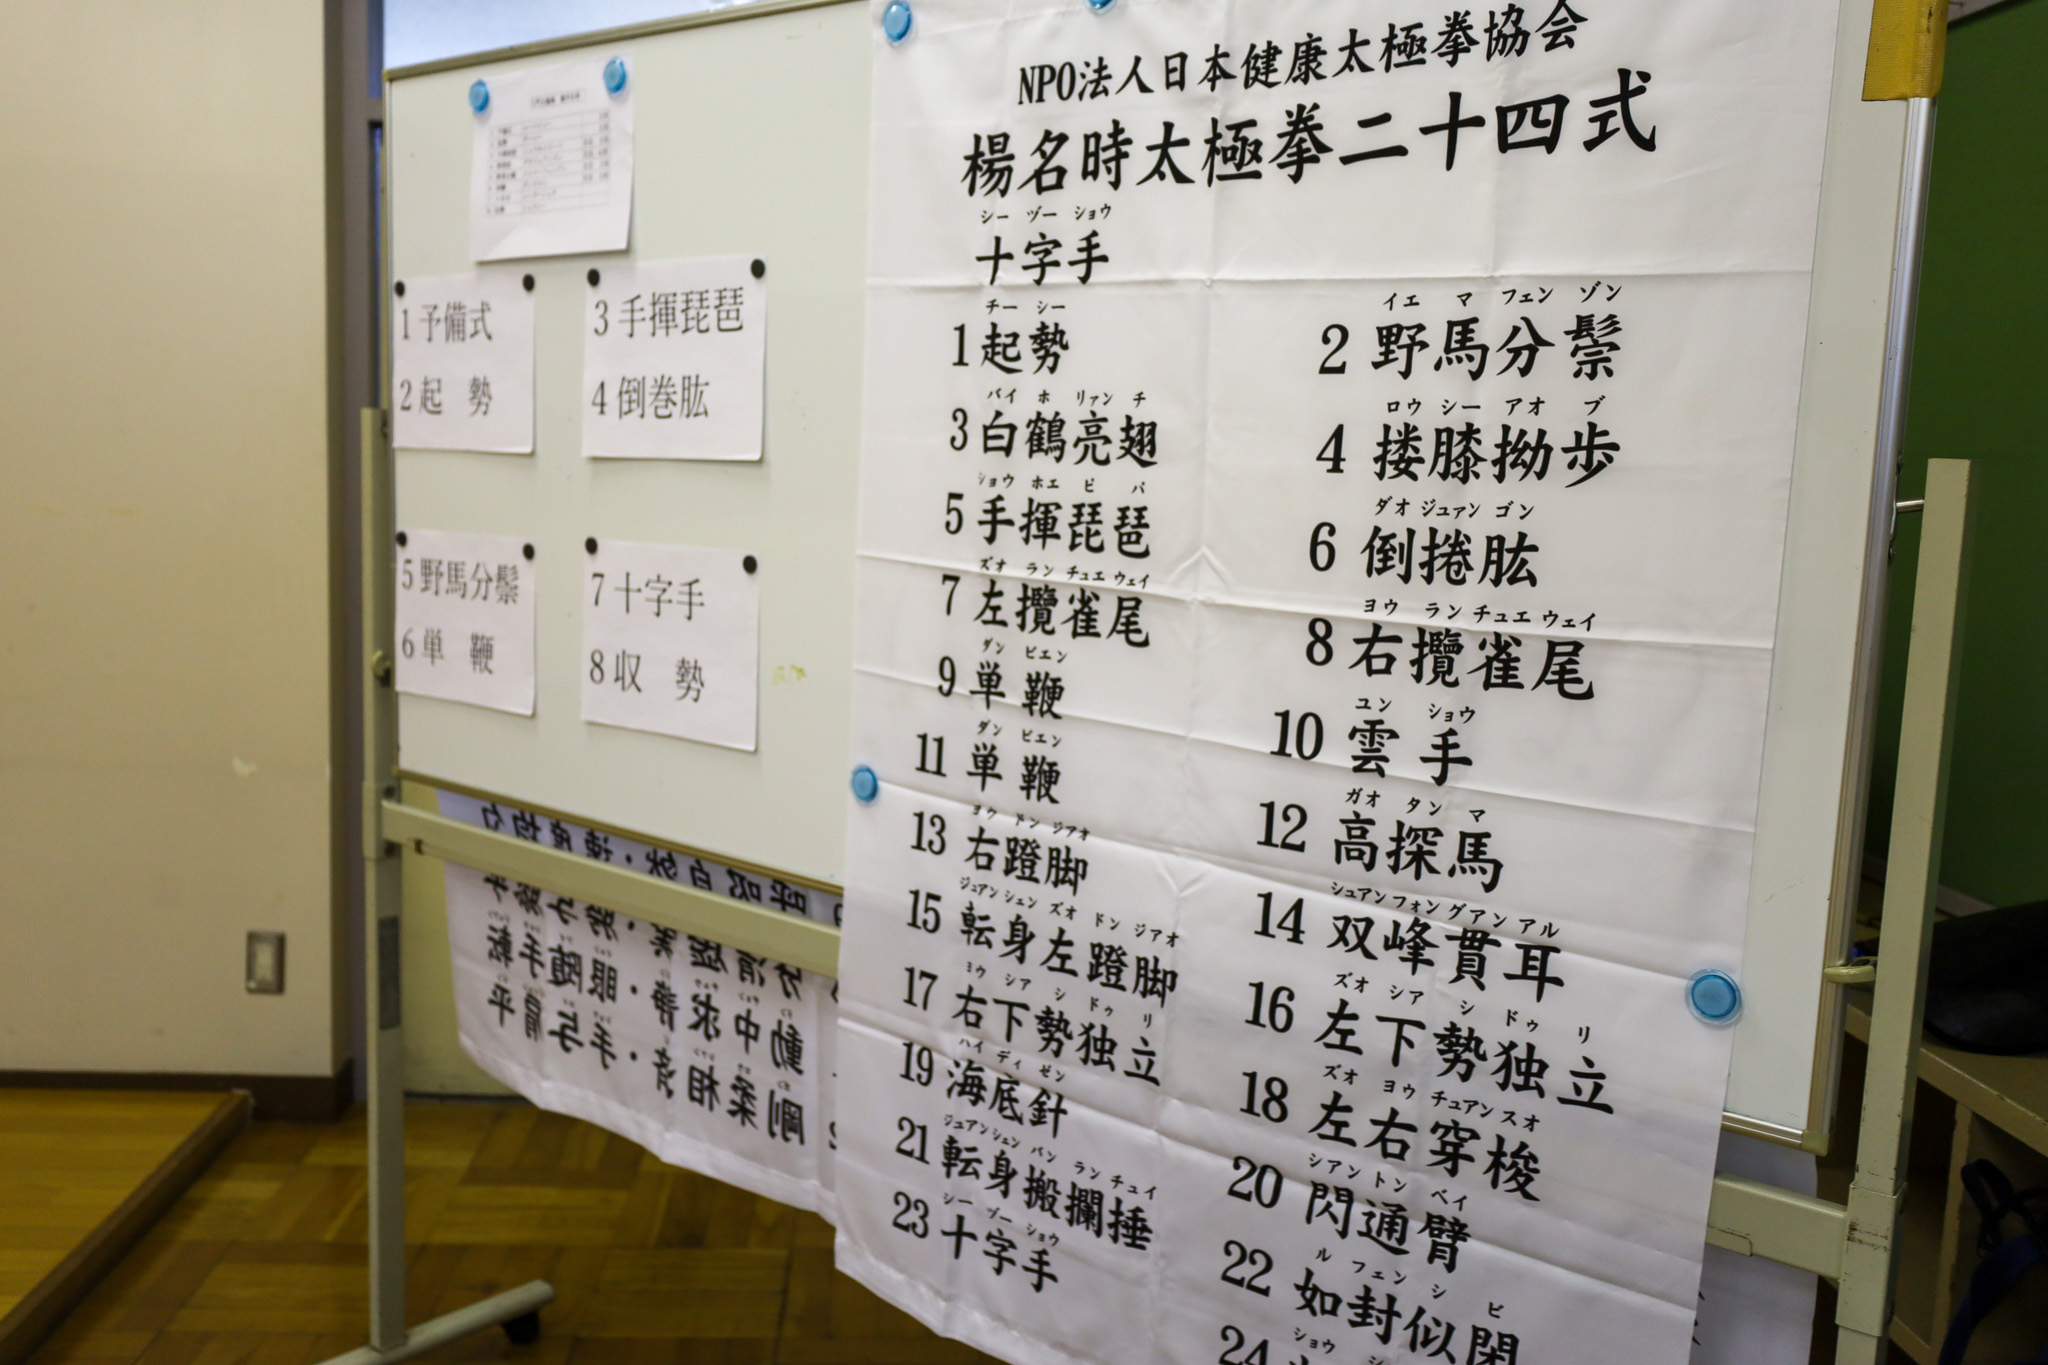 1予備式
2起 勢
3手揮琵琶
4倒巻肱
5野馬分鬃
6単 鞭
7十字手
8収 勢
NPO法人日本健康太極拳協会
楊名時太極拳二十四式
シー ヅー ショウ
十字手
チー シー
1 起勢
イエ マ フェン ゾン
2 野馬分鬃
バイ ホ リァン チ
3 白鶴亮翅
ロウ シー アオ ブ
4 搂膝拗歩
ショウ ホエ ピ パ
5 手揮琵琶
ダオ ジュァン ゴン
6 倒捲肱
ズオ ラン チュエ ウェイ
7 左攬雀尾
ヨウ ラン チュエ ウェイ
8 右攬雀尾
ダン ビエン
9 単鞭
ユン ショウ
10 雲手
ダン ビエン
11 単鞭
ガオ タン マ
12 高探馬
ヨウ ドン ジアオ
13 右蹬脚
シュアン フォン グアン アル
14 双峰貫耳
ジュアン シェン ズオ ドン ジアオ
15 転身左蹬脚
ズオ シア シ ドゥ リ
16 左下勢独立
ヨウ シア シ ドゥ リ
17 右下勢独立
ズオ ヨウ チュアン スオ
18 左右穿梭
ハイ ディ ゼン
19 海底針
シアン トン ベイ
20 閃通臂
ジュアン シェン バン ラン チュイ
21 転身搬攔捶
ル フェン シ ビ
22 如封似閉
シー ヅー ショウ
23 十字手
ショウ
24